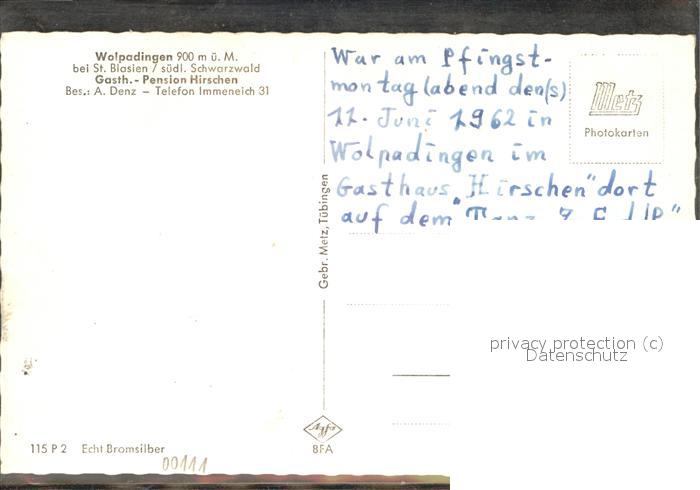 Wolpadingen 900 m ü. M.
bei St. Blasien / südl. Schwarzwald
Gasth.- Pension Hirschen
Bes.: A. Denz — Telefon Immeneich 31
War am Pfingst-
montag (abend den(s)
11. Juni 1962 in
Wolpadingen im
Gasthaus „Hirschen" dort
auf dem
Metz
Photokarten
Gebr. Metz, Tübingen
privacy protection (c)
Datenschutz
Agfa
BFA
115 P 2 Echt Bromsilber
00111